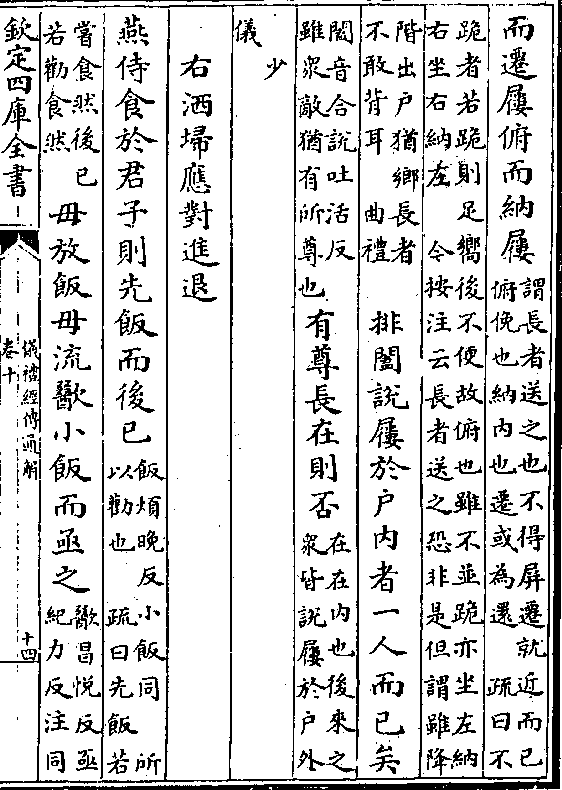 而遷屨俯而納屨謂長者送之也不得屏遷就近而已俯俛也納内也遷或為還　疏曰不
跪者若跪則足嚮後不便故俯也雖不並跪亦坐左納右坐右納左　令按注云長者送之恐非是但謂雖降
階出户猶鄉長者不敢背耳　曲禮　排闔説屨於户内者一人而已矣
闔音合説吐活反雖衆敵猶有所尊也有尊長在則否在在内也後來之衆皆説屨於户外
少儀
右洒埽應對進退
燕侍食於君子則先飯而後已飯煩晚反　小飯同　所以勸也　疏曰先飯若
嘗食然後已若勸食然毋放飯毋流歠小飯而亟之歠昌悦反亟紀力反注同
欽定四庫全書
儀禮經傳通解
卷十
十四